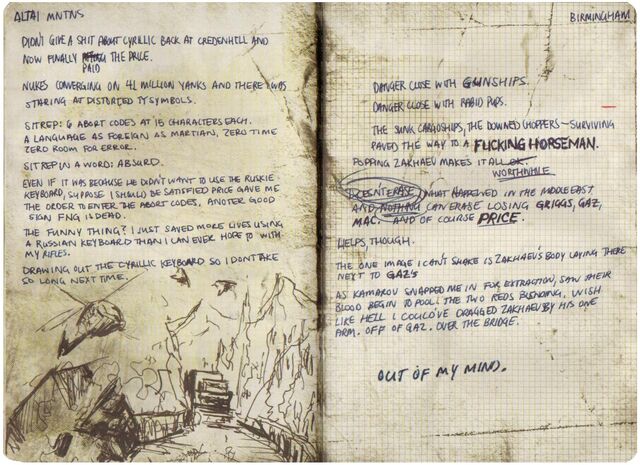 ALTAI MNTNS
DIDN'T GIVE A SHIT ABOUT CYRILLIC BACK AT CREDENHILL AND
NOW FINALLY PAID THE PRICE.
NUKES CONVERGING ON 41 MILLION YANKS AND THERE I WAS
STARING AT DISTORTED TY SYMBOLS.
SITREP: 6 ABORT CODES AT 15 CHARACTERS EACH.
A LANGUAGE AS FOREIGN AS MARTIAN, ZERO TIME
ZERO ROOM FOR ERROR.
SITREP IN A WORD: ABSURD.
EVEN IF IT WAS BECAUSE HE DIDN'T WANT TO USE THE RUSKIE
KEYBOARD, SUPPOSE I SHOULD BE SATISFIED PRICE GAVE ME
THE ORDER TO ENTER THE ABORT CODES. ANOTHER GOOD
SIGN FNG IS DEAD.
THE FUNNY THING? I JUST SAVED MORE LIVES USING
A RUSSIAN KEYBOARD THAN I CAN EVER HOPE TO WITH
MY RIFLES.
DRAWING OUT THE CYRILLIC KEYBOARD SO I DON'T TAKE
SO LONG NEXT TIME.
BIRMINGHAM
DANGER CLOSE WITH GUNSHIPS.
DANGER CLOSE WITH RABID PUPS.
THE SUNK CARGOSHIPS, THE DOWNED CHOPPERS - SURVIVING
PAVED THE WAY TO A FUCKING HORSEMAN.
POPPING ZAKHAEV MAKES IT ALL OK.
WORTHWHILE
DOESN'T ERASE WHAT HAPPENED IN THE MIDDLE EAST
AND NOTHING CAN ERASE LOSING GRIGGS, GAZ,
MAC. AND OF COURSE PRICE.
HELPS, THOUGH.
THE ONE IMAGE I CAN'T SHAKE IS ZAKHAEV'S BODY LAYING THERE
NEXT TO GAZ'S
AS KAMAROV SNAPPED ME IN FOR EXTRACTION, SAW THEIR
BLOOD BEGIN TO POOL. THE TWO REDS BLENDING. WISH
LIKE HELL I COULD'VE DRAGGED ZAKHAEV BY HIS ONE
ARM. OFF OF GAZ. OVER THE BRIDGE.
OUT OF MY MIND.